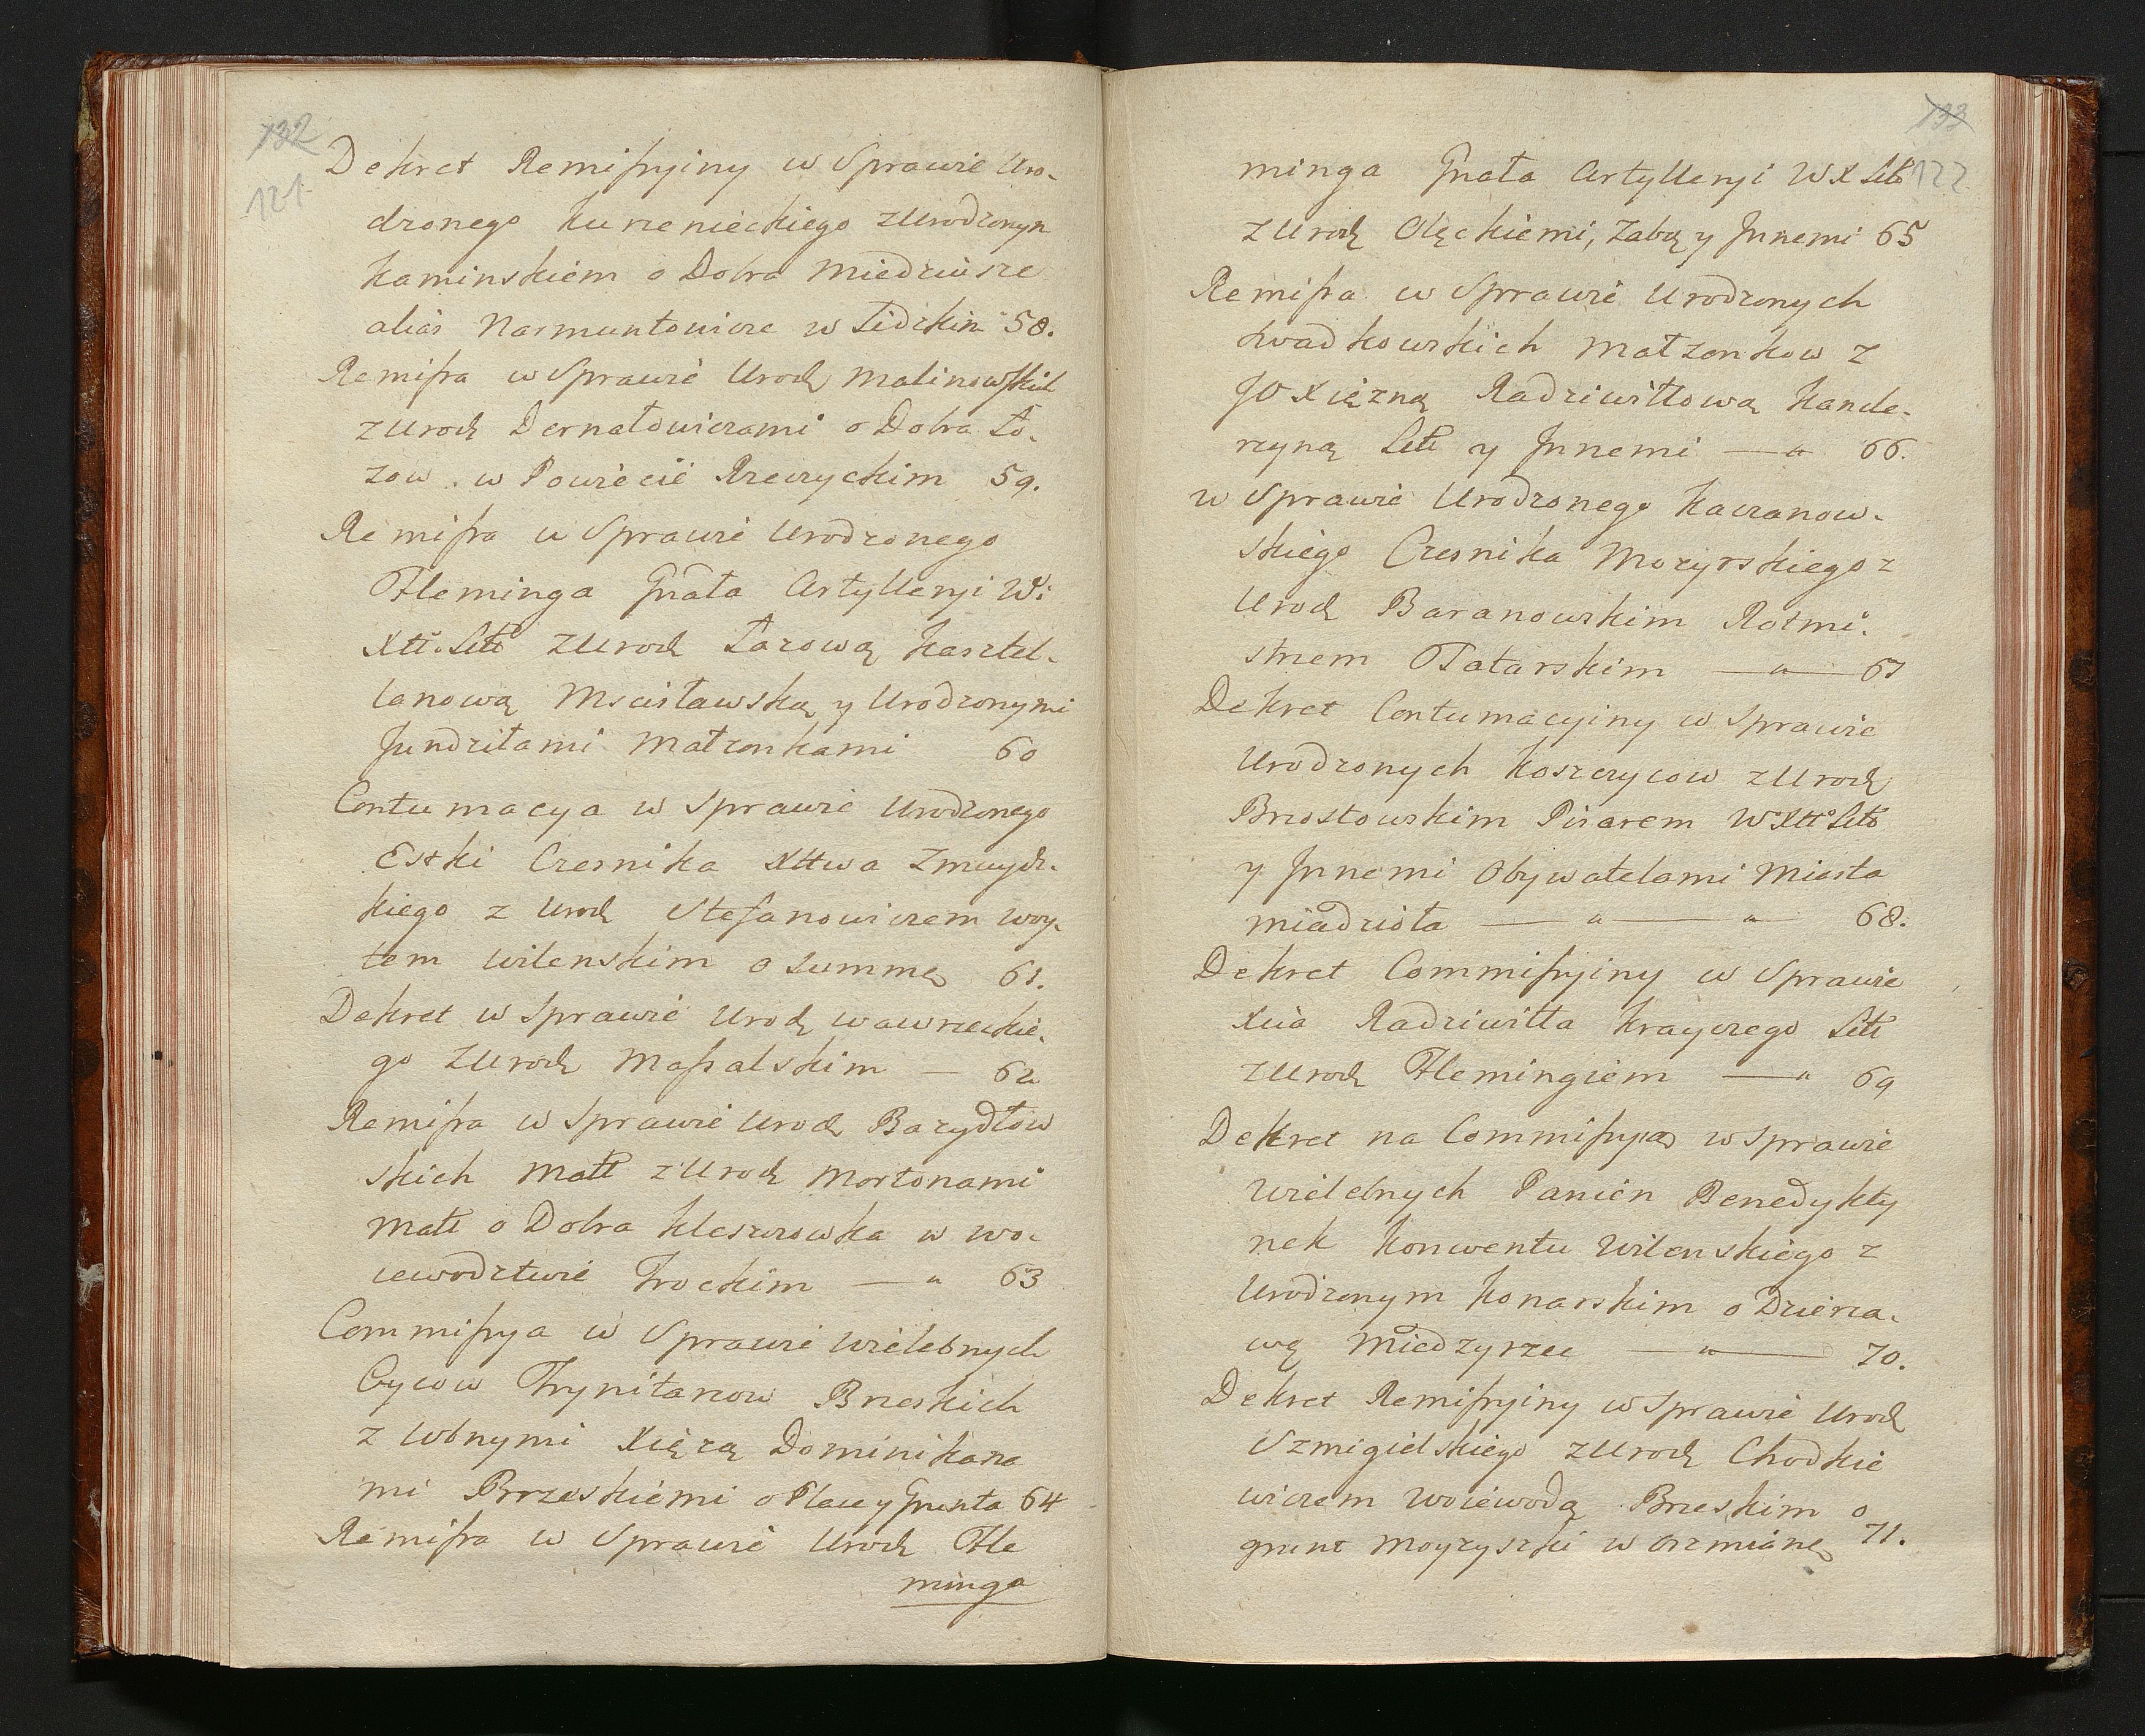 132
121
Dekret Remissyiny w Sprawie Uro-
dzonego Kurzenieckiego z Urodzonym
Kaminskiem o Dobra Miedziusze
alias Narmuntowicze w Lidzkim 58.
Remissa w Sprawie Urodz Malinowskich
z Urodz Dernałowiczami o Dobra Ło-
zow w Powiecie Rzeczyckim 59.
Remissa w Sprawie Urodzonego
Fleminga Gnała Artylleryi W:
Xtt. Litt z Urodz Łazową Kasztel-
lanową Mscisławską y Urodzonymi
Jundziłami Małzonkami 60
Contumacya w Sprawie Urodzonego
Estki Czesnika Xttwa Zmuydz-
kiego z Urodz Stefanowiczem Woy-
tem Wilenskim o Summę 61.
Dekret w Sprawie Urodz Wawrzeckie-
go z Urodz Massalskim — 62
Remissa w Sprawie Urodz Bazydłow
skich Małł z Urodz Mortonami
Małł o Dobra Kleszczowka w Wo-
iewodztwie Trockim — " 63
Commissya w Sprawie Wielebnych
Oycow Trynitarzow Brzeskich
z Wbnymi Xięzą Dominikana
mi Brzeskiemi o Place y Grunta 64
Remissa w Sprawie Urodz Fle
minga
133
122
minga Gnała Artylleryi W X Litt
z Urodz Olęckiemi, Zabą y Innemi 65
Remissa w Sprawie Urodzonych
Kwadkowskich Małzonkow z
JO Xięzną Radziwiłłową Kancle-
rzyną Litt y Innemi — " 66.
w Sprawie Urodzonego Kaczanow-
skiego Czesnika Mozyrskiego z
Urodz Baranowskim Rotmi-
strzem Tatarskim — " — 67
Dekret Contumacyiny w Sprawie
Urodzonych Koszczycow z Urodz
Brzostowskim Pisarem W Xtt Litt
y Innemi Obywatelami Miasta
Miadzioła — " — " 68.
Dekret Commissyiny w Sprawie
Xcia Radziwiłła Krayczego Litt
z Urodz Flemingiem — " 69
Dekret na Commissyą w Sprawie
Wielebnych Panien Benedykty
nek Konwentu Wilenskiego z
Urodzonym Konarskim o Dzierza-
wę Miedzyrzec — " — 70.
Dekret Remissyiny w Sprawie Urodz
Szmigielskiego z Urodz Chodkie
wiczem Woiewodą Brzeskim o
grunt Moyzyszki w Oszmianę 71.